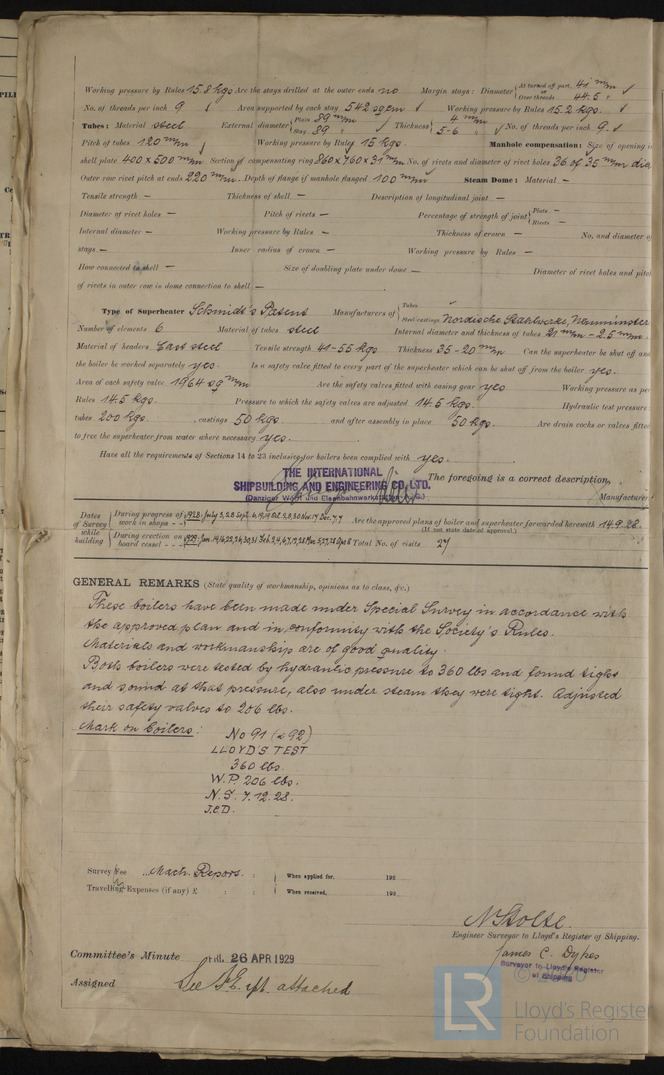 Working pressure by Rules 15.8 kgs Are the stays drilled at the outer ends no Margin stays: Diameter { At turned off part, 41 m/m or Over threads 44.5 "
No. of threads per inch 9 Area supported by each stay 542 sq cm Working pressure by Rules 15.2 kgs.
Tubes: Material steel External diameter { Plain 89 m/m Stay 89 " Thickness { 4 m/m 5-6 " No. of threads per inch 9
Pitch of tubes 120 m/m Working pressure by Rules 15 kgs. Manhole compensation: Size of opening in
shell plate 400 x 500 m/m Section of compensating ring 860 x 760 x 31 m/m No. of rivets and diameter of rivet holes 36 of 35 m/m dia
Outer row rivet pitch at ends 220 m/m. Depth of flange if manhole flanged 100 m/m Steam Dome: Material —
Tensile strength — Thickness of shell — Description of longitudinal joint —
Diameter of rivet holes — Pitch of rivets — Percentage of strength of joint { Plate — Rivets —
Internal diameter — Working pressure by Rules — Thickness of crown — No. and diameter of
stays — Inner radius of crown — Working pressure by Rules —
How connected to shell — Size of doubling plate under dome — Diameter of rivet holes and pitch
of rivets in outer row in dome connection to shell —
Type of Superheater Schmidt's Patent Manufacturers of { Tubes Steel castings Nordische Stahlwerke, Neumünster
Number of elements 6 Material of tubes steel Internal diameter and thickness of tubes 21 m/m - 2.5 m/m
Material of headers Cast steel Tensile strength 41-55 kgs Thickness 35-20 m/m Can the superheater be shut off and
the boiler be worked separately yes. Is a safety valve fitted to every part of the superheater which can be shut off from the boiler yes.
Area of each safety valve 1964 sq m/m Are the safety valves fitted with easing gear yes Working pressure as per
Rules 14.5 kgs. Pressure to which the safety valves are adjusted 14.5 kgs. Hydraulic test pressure:
tubes 200 kgs. , castings 50 kgs. and after assembly in place 50 kgs. Are drain cocks or valves fitted
to free the superheater from water where necessary yes.
Have all the requirements of Sections 14 to 23 inclusive for boilers been complied with yes.
THE INTERNATIONAL
SHIPBUILDING AND ENGINEERING CO. LTD.
The foregoing is a correct description,
Manufacturer
Dates of Survey while building { During progress of work in shops - -
Are the approved plans of boiler and superheater forwarded herewith 14.9.28.
(If not state date of approval.)
During erection on board vessel - - -
Total No. of visits 27
GENERAL REMARKS (State quality of workmanship, opinions as to class, &c.)
These boilers have been made under Special Survey in accordance with
the approved plan and in conformity with the Society's Rules.
Materials and workmanship are of good quality.
Both boilers were tested by hydraulic pressure to 360 lbs and found tight
and sound at that pressure, also under steam they were tight. Adjusted
their safety valves to 206 lbs.
Mark on boilers:
No 91 (& 92)
LLOYD'S TEST
360 lbs.
W.P. 206 lbs.
N.S. 7.12.28.
J.C.D.
Survey Fee ... Mach. Repors. : : When applied for, 192
Travelling Expenses (if any) £ : : When received, 192
N Stolte.
Engineer Surveyor to Lloyd's Register of Shipping.
James C. Dykes
Surveyor to Lloyd's Register
of Shipping
Committee's Minute FRI. 26 APR 1929
Assigned See F.E. rpt. attached
LR
Lloyd's Register
Foundation